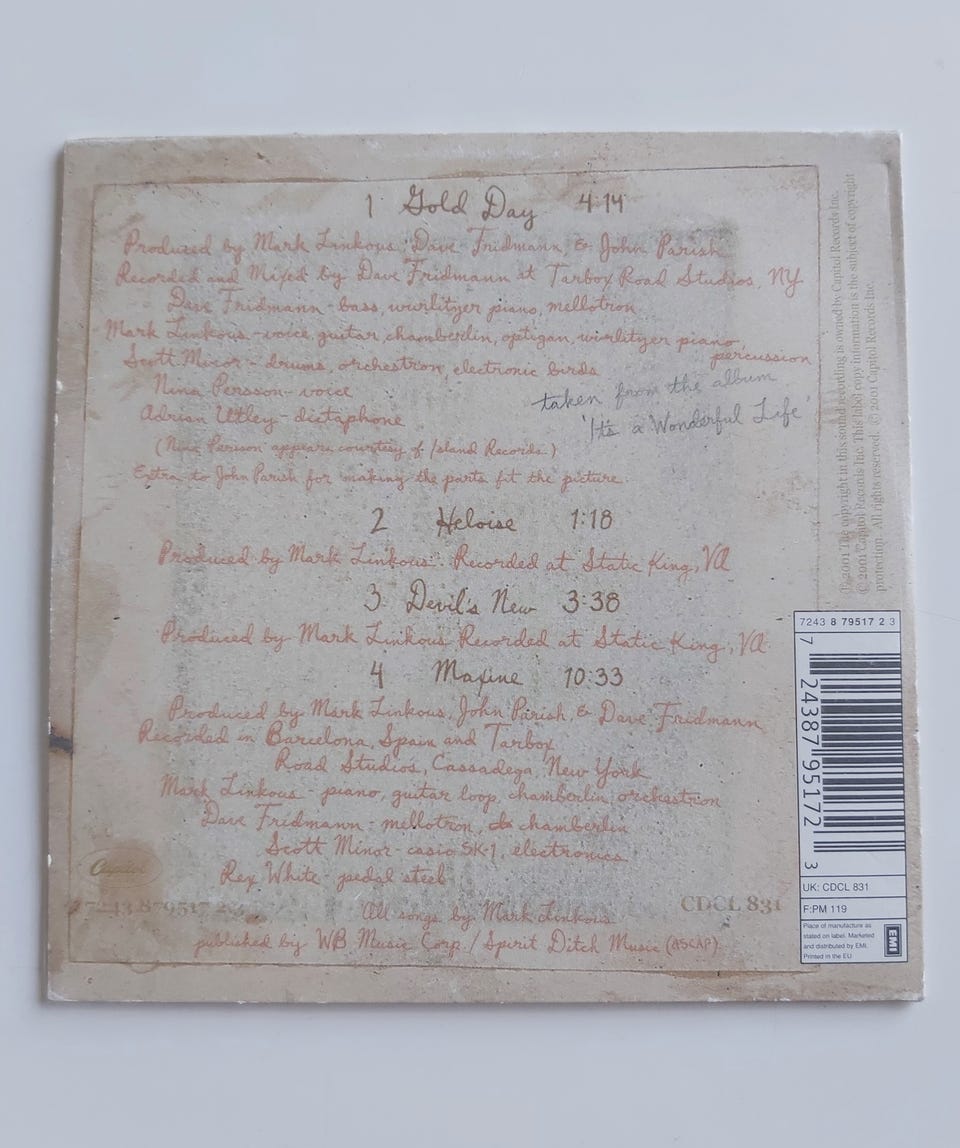 1 Gold Day 4:14
Produced by Mark Linkous, Dave Fridmann, & John Parish
Recorded and Mixed by Dave Fridmann at Tarbox Road Studios, NY
Dave Fridmann - bass, wurlitzer piano, mellotron
Mark Linkous - voice, guitar, chamberlin, optigan, wurlitzer piano,
percussion
Scott Minor - drums, orchestron, electronic birds
Nina Persson - voice
Adrian Utley - dictaphone
taken from the album
'It's a Wonderful Life'
(Nina Persson appears courtesy of Island Records.)
Extra to John Parish for making the parts fit the picture.
2 Heloise 1:18
Produced by Mark Linkous. Recorded at Static King, VA
3 Devil's New 3:38
Produced by Mark Linkous Recorded at Static King, VA
4 Maxine 10:33
Produced by Mark Linkous, John Parish, & Dave Fridmann
Recorded in Barcelona, Spain and Tarbox
Road Studios, Cassadega, New York
Mark Linkous - piano, guitar loop, chamberlin, orchestron
Dave Fridmann - mellotron, chamberlin
Scott Minor - casio SK-1, electronics
Rex White - pedal steel
All songs by Mark Linkous
published by WB Music Corp. / Spirit Ditch Music (ASCAP)
Capitol
7243 879517 2 3
CDCL 831
℗ 2001 The copyright in this sound recording is owned by Capitol Records Inc.
© 2001 Capitol Records Inc. This label copy information is the subject of copyright
protection. All rights reserved. © 2001 Capitol Records Inc.
7243 8 79517 2 3
7 24387 95172 3
UK: CDCL 831
F:PM 119
Place of manufacture as
stated on label. Marketed
and distributed by EMI.
Printed in the EU
EMI